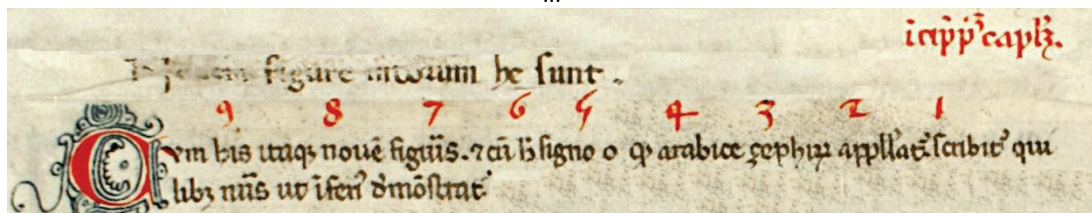 ...
figure indorum he sunt.
9 8 7 6 5 4 3 2 1
Cum his itaqꝫ nouē figuris. ⁊ cū h signo o qd arabice çephirꝝ appllat᷑ scribit᷑ qui
libꝫ nūs ut īferiꝰ demōstrat᷑